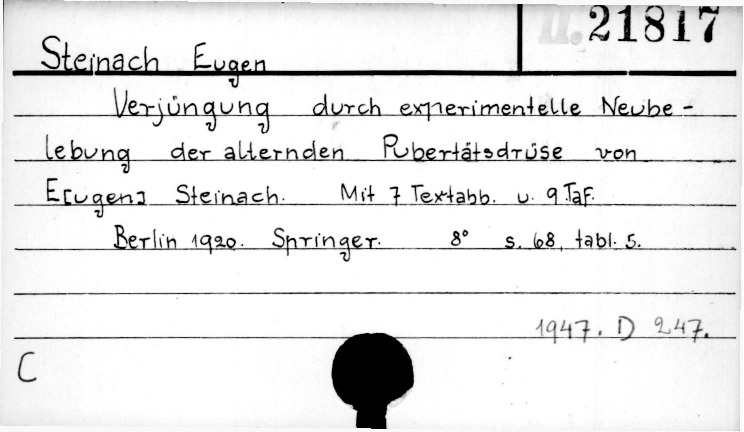 II. 21817
Steinach Eugen
Verjüngung durch experimentelle Neube-
lebung der alternden Pubertätsdrüse von
E[ugen] Steinach. Mit 7 Textabb. u. 9 Taf.
Berlin 1920. Springer. 8° s. 68, tabl. 5.
1947. D 247.
C